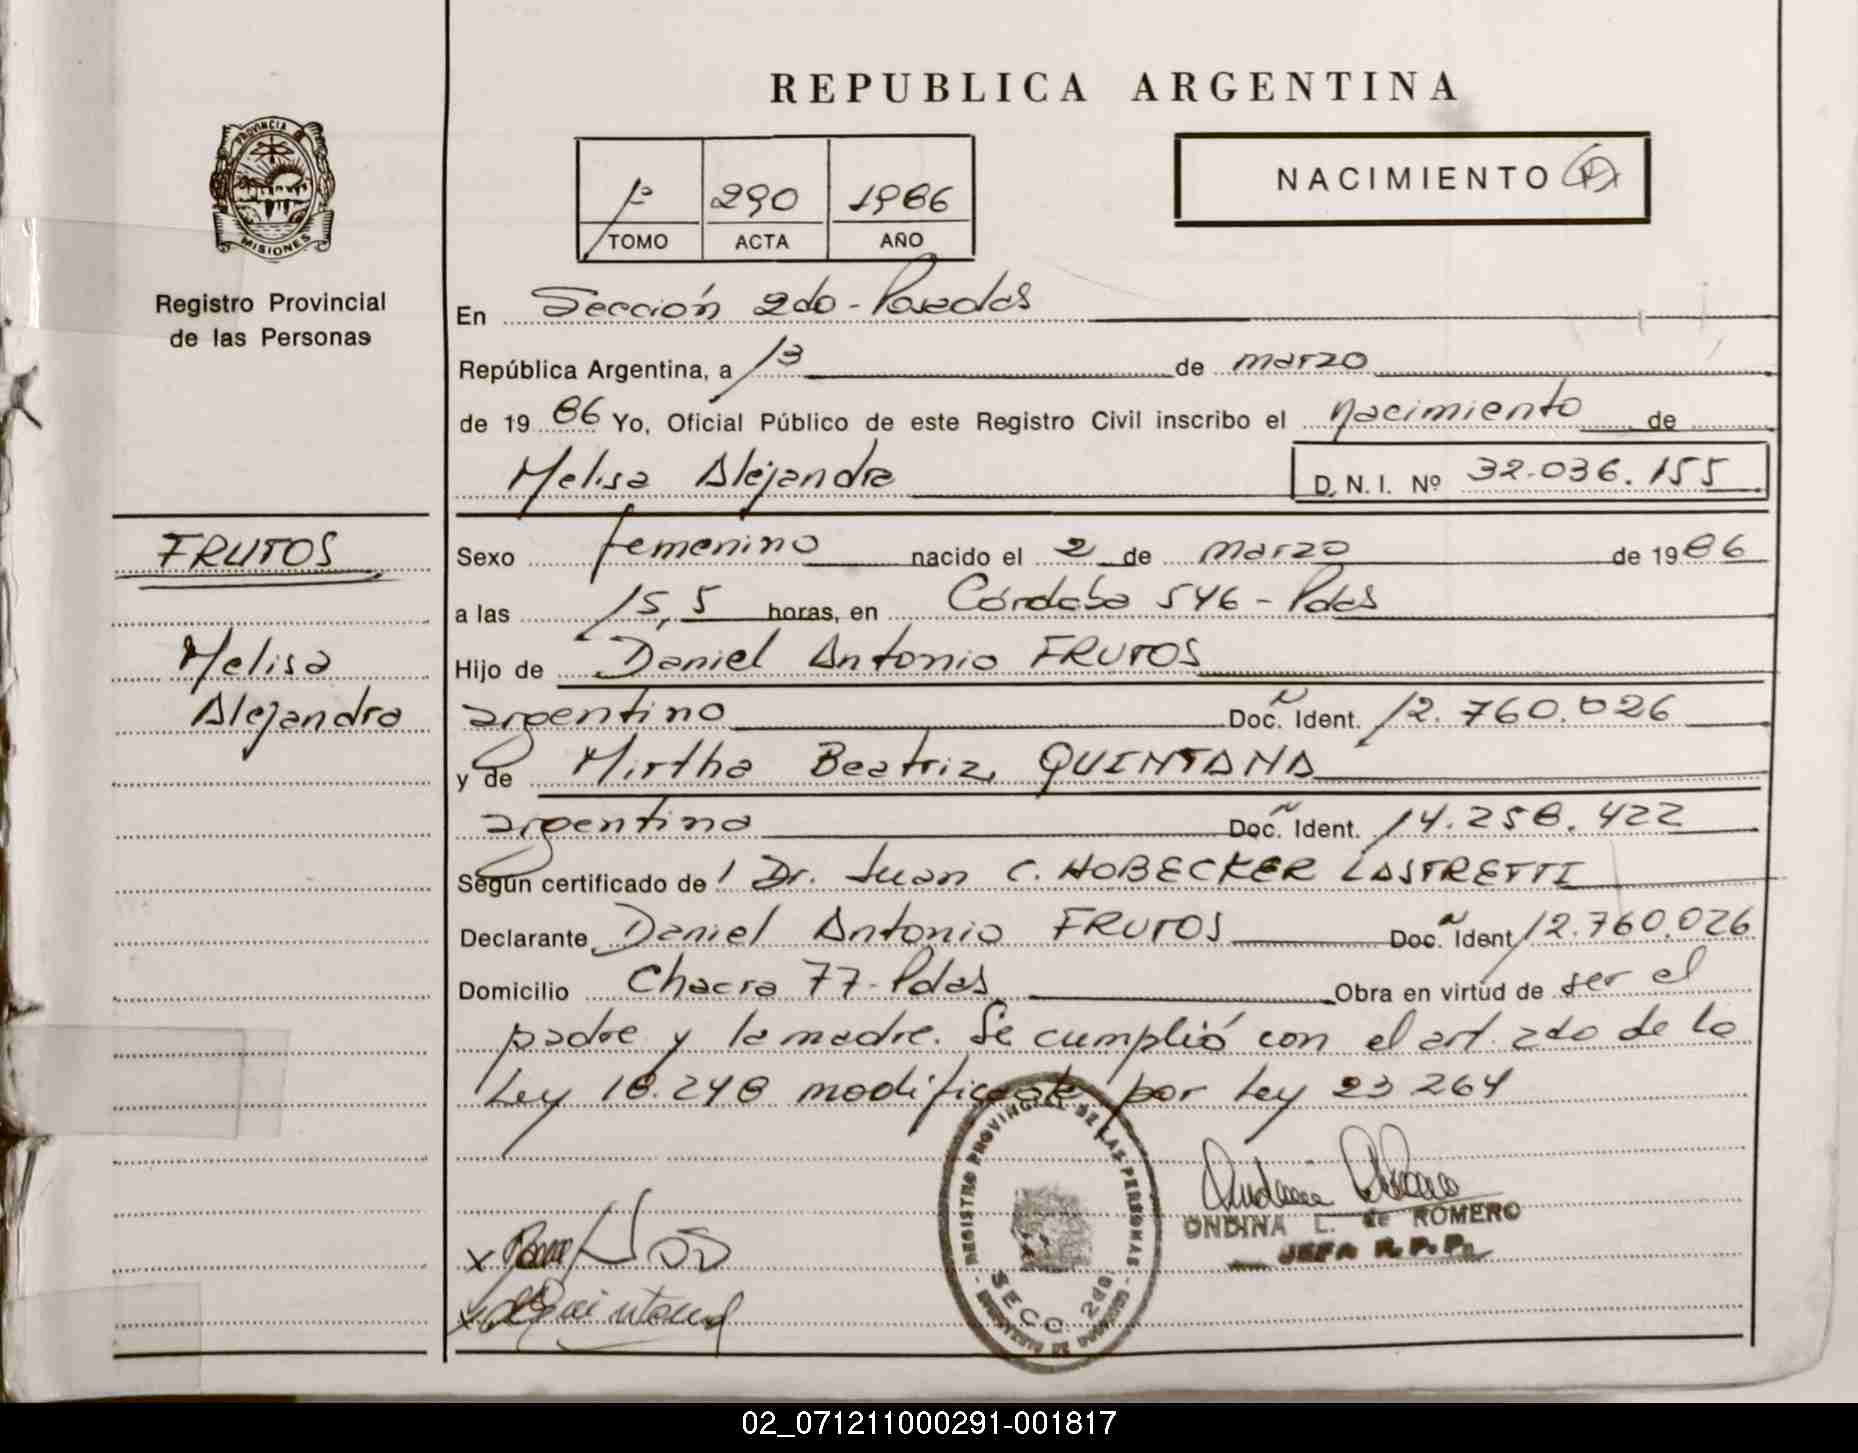 REPUBLICA ARGENTINA
PROVINCIA
MISIONES
Registro Provincial
de las Personas
1º 290 1986
TOMO ACTA AÑO
NACIMIENTO
En Sección 2do - Posadas
República Argentina, a 13 de marzo
de 19 86 Yo, Oficial Público de este Registro Civil inscribo el nacimiento de
Melisa Alejandra D. N. I. Nº 32.036.155
FRUTOS
Melisa
Alejandra
Sexo femenino nacido el 2 de marzo de 19 86
a las 15,5 horas, en Córdoba 546 - Pdas
Hijo de Daniel Antonio FRUTOS
argentino Doc. Ident. 12.760.026
y de Mirtha Beatriz QUINTANA
argentina Doc. Ident. 14.258.422
Según certificado de Dr. Juan C. HOBECKER LASTRETTI
Declarante Daniel Antonio FRUTOS Doc. Ident 12.760.026
Domicilio Chacra 77 - Pdas Obra en virtud de ser el
padre y la madre. Se cumplió con el art. 2do de la
Ley 18.248 modificada por Ley 23264
REGISTRO PROVINCIAL DE LAS PERSONAS
SECC. 2da
ONDINA L. de ROMERO
JEFA R.P.P.
02_071211000291-001817